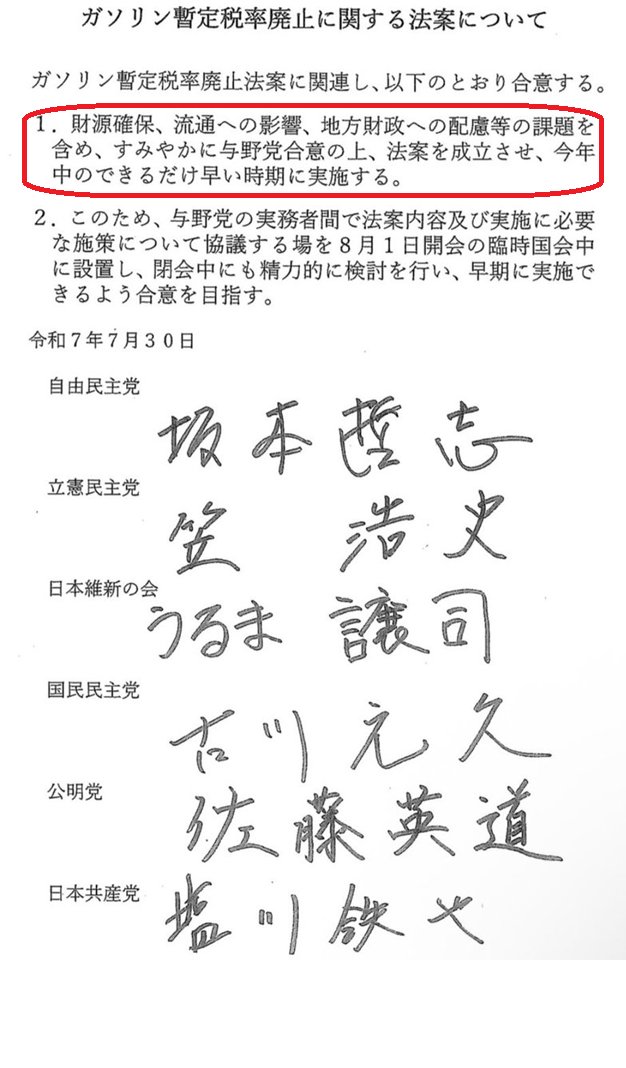 ガソリン暫定税率廃止に関する法案について
ガソリン暫定税率廃止法案に関連し、以下のとおり合意する。
１．財源確保、流通への影響、地方財政への配慮等の課題を
含め、すみやかに与野党合意の上、法案を成立させ、今年
中のできるだけ早い時期に実施する。
２．このため、与野党の実務者間で法案内容及び実施に必要
な施策について協議する場を８月１日開会の臨時国会中
に設置し、閉会中にも精力的に検討を行い、早期に実施で
きるよう合意を目指す。
令和７年７月３０日
自由民主党
坂本哲志
立憲民主党
笠 浩史
日本維新の会
うるま 譲司
国民民主党
古川元久
公明党
佐藤英道
日本共産党
塩川鉄也